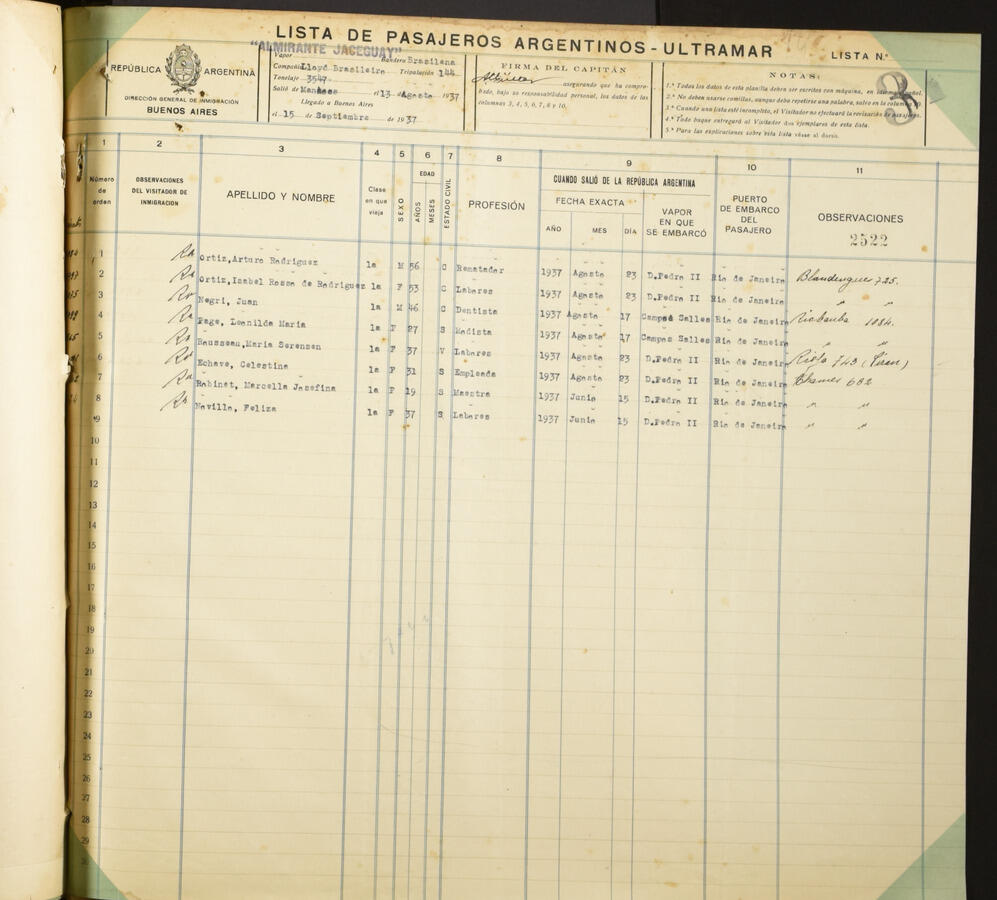 LISTA DE PASAJEROS ARGENTINOS - ULTRAMAR
LISTA N.º
3
REPÚBLICA ARGENTINA
DIRECCIÓN GENERAL DE INMIGRACIÓN
BUENOS AIRES
Vapor "ALMIRANTE JACEGUAY" Bandera Brasilena
Compañía Lloyd Brasileiro Tripulación 144
Tonelaje 3547
Salió de Manaos el 13 de Agosto 1937
Llegado a Buenos Aires
el 15 de Septiembre de 1937
FIRMA DEL CAPITÁN
asegurando que ha compro-
bado, bajo su responsabilidad personal, los datos de las
columnas 3, 4, 5, 6, 7, 8 y 10.
NOTAS:
1.ª Todos los datos de esta planilla deben ser escritos con máquina, en idioma español.
2.ª No deben usarse comillas, aunque deba repetirse una palabra, salvo en la columna
3.ª Cuando una lista esté incompleta, el Visitador no efectuará la revisación de pasajeros.
4.ª Todo buque entregará al Visitador dos ejemplares de esta lista.
5.ª Para las explicaciones sobre esta lista véase al dorso.
1 2 3 4 5 6 7 8 9 10 11
Número de orden
OBSERVACIONES DEL VISITADOR DE INMIGRACIÓN
APELLIDO Y NOMBRE
Clase en que viaja
SEXO
EDAD
AÑOS
MESES
ESTADO CIVIL
PROFESIÓN
CUANDO SALIÓ DE LA REPÚBLICA ARGENTINA
FECHA EXACTA
AÑO MES DÍA
VAPOR EN QUE SE EMBARCÓ
PUERTO DE EMBARCO DEL PASAJERO
OBSERVACIONES
2522
1 Ortiz, Arturo Rodriguez 1a M 56 C Rematador 1937 Agosto 23 D.Pedro II Rio de Janeiro Blandengues 725.
2 Ortiz, Isabel Rossa de Rodriguez 1a F 53 C Labores 1937 Agosto 23 D.Pedro II Rio de Janeiro " "
3 Negri, Juan 1a M 46 C Dentista 1937 Agosto 17 Campos Salles Rio de Janeiro Riobamba 1084.
4 Page, Leonilda Maria 1a F 27 S Modista 1937 Agosto 17 Campos Salles Rio de Janeiro " "
5 Rousseau, Maria Sorensen 1a F 37 V Labores 1937 Agosto 23 D.Pedro II Rio de Janeiro 743
6 Echave, Celestina 1a F 31 S Empleada 1937 Agosto 23 D.Pedro II Rio de Janeiro 682
7 Robinet, Marcella Josefina 1a F 19 S Maestra 1937 Junio 15 D.Pedro II Rio de Janeiro " "
8 Neville, Feliza 1a F 37 S Labores 1937 Junio 15 D.Pedro II Rio de Janeiro " "
9
10
11
12
13
14
15
16
17
18
19
20
21
22
23
24
25
26
27
28
29